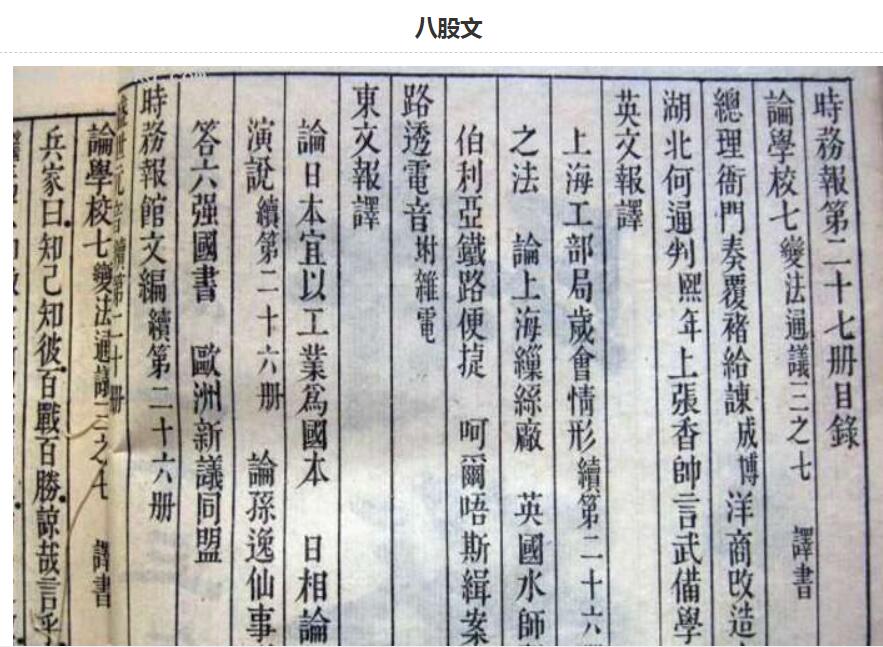 八股文
時務報第二十七册目錄
論學校七變法通議三之七 譯書
總理衙門奏覆褚給諫成博洋商改造
湖北何通判熙年上張香帥言武備學
英文報譯
上海工部局歲會情形續第二十六册
之法 論上海繅絲廠 英國水師
伯利亞鐵路便捷 呵爾唔斯緝案
路透電音坿雜電
東文報譯
論日本宜以工業爲國本 日相論
演說續第二十六册 論孫逸仙事
答六强國書 歐洲新議同盟
時務報館文編續第二十六册
盛世元音續第二十册
論學校七變法通議三之七 譯書
兵家曰知己知彼百戰百勝諒哉言乎